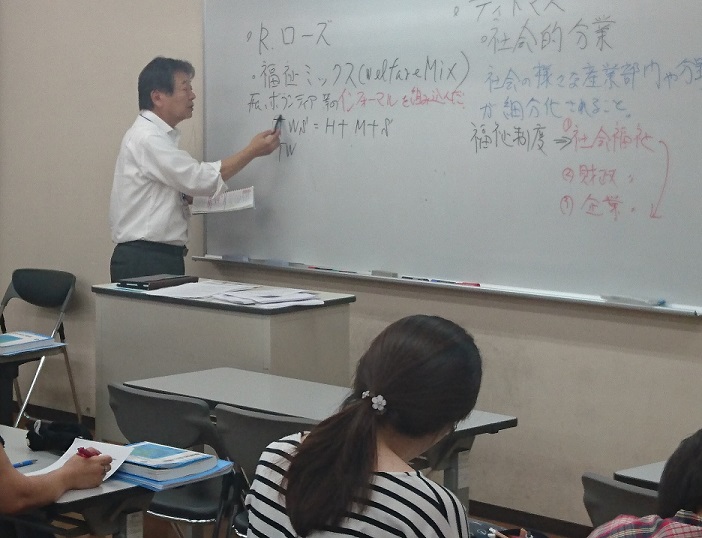 。R.ローズ
。福祉ミックス(welfare Mix)
ボランティア等のインフォーマルを組み込んだ
TWS = H + M + S
TW
ティトマス
。社会的分業
社会の様々な産業部門や分業
が細分化されること。
福祉制度 ⇒ ①社会福祉
②財政 〃
③企業 〃